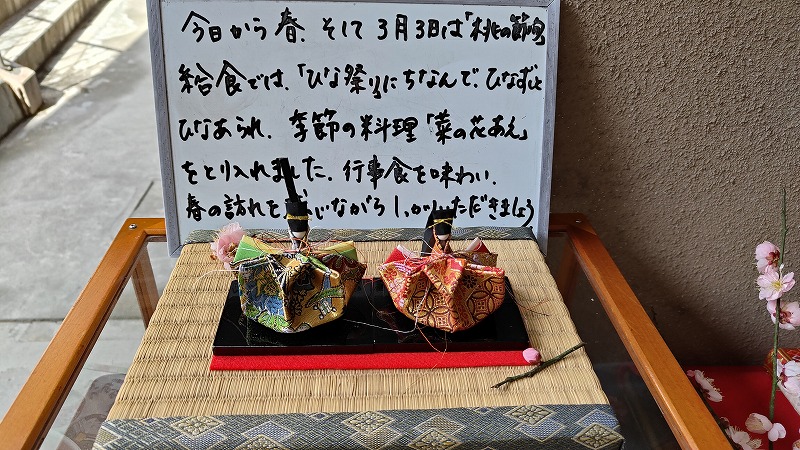 今日から春、そして3月3日は「桃の節句」
給食では、「ひな祭り」にちなんで、ひなずしと
ひなあられ、季節の料理「菜の花あえ」
をとり入れました。行事食を味わい、
春の訪れを じながらしっかりいただきましょう